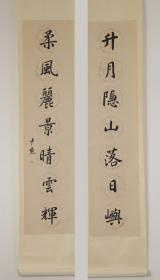 升月隐山落日嶼
柔風麗景晴雲輝